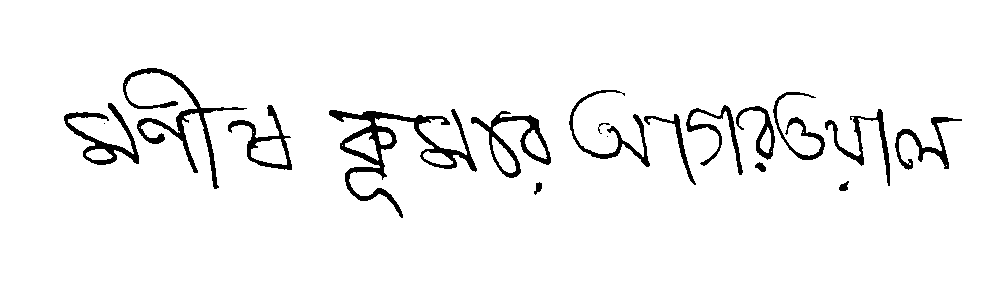 মনীষ কুমার আগারওয়াল